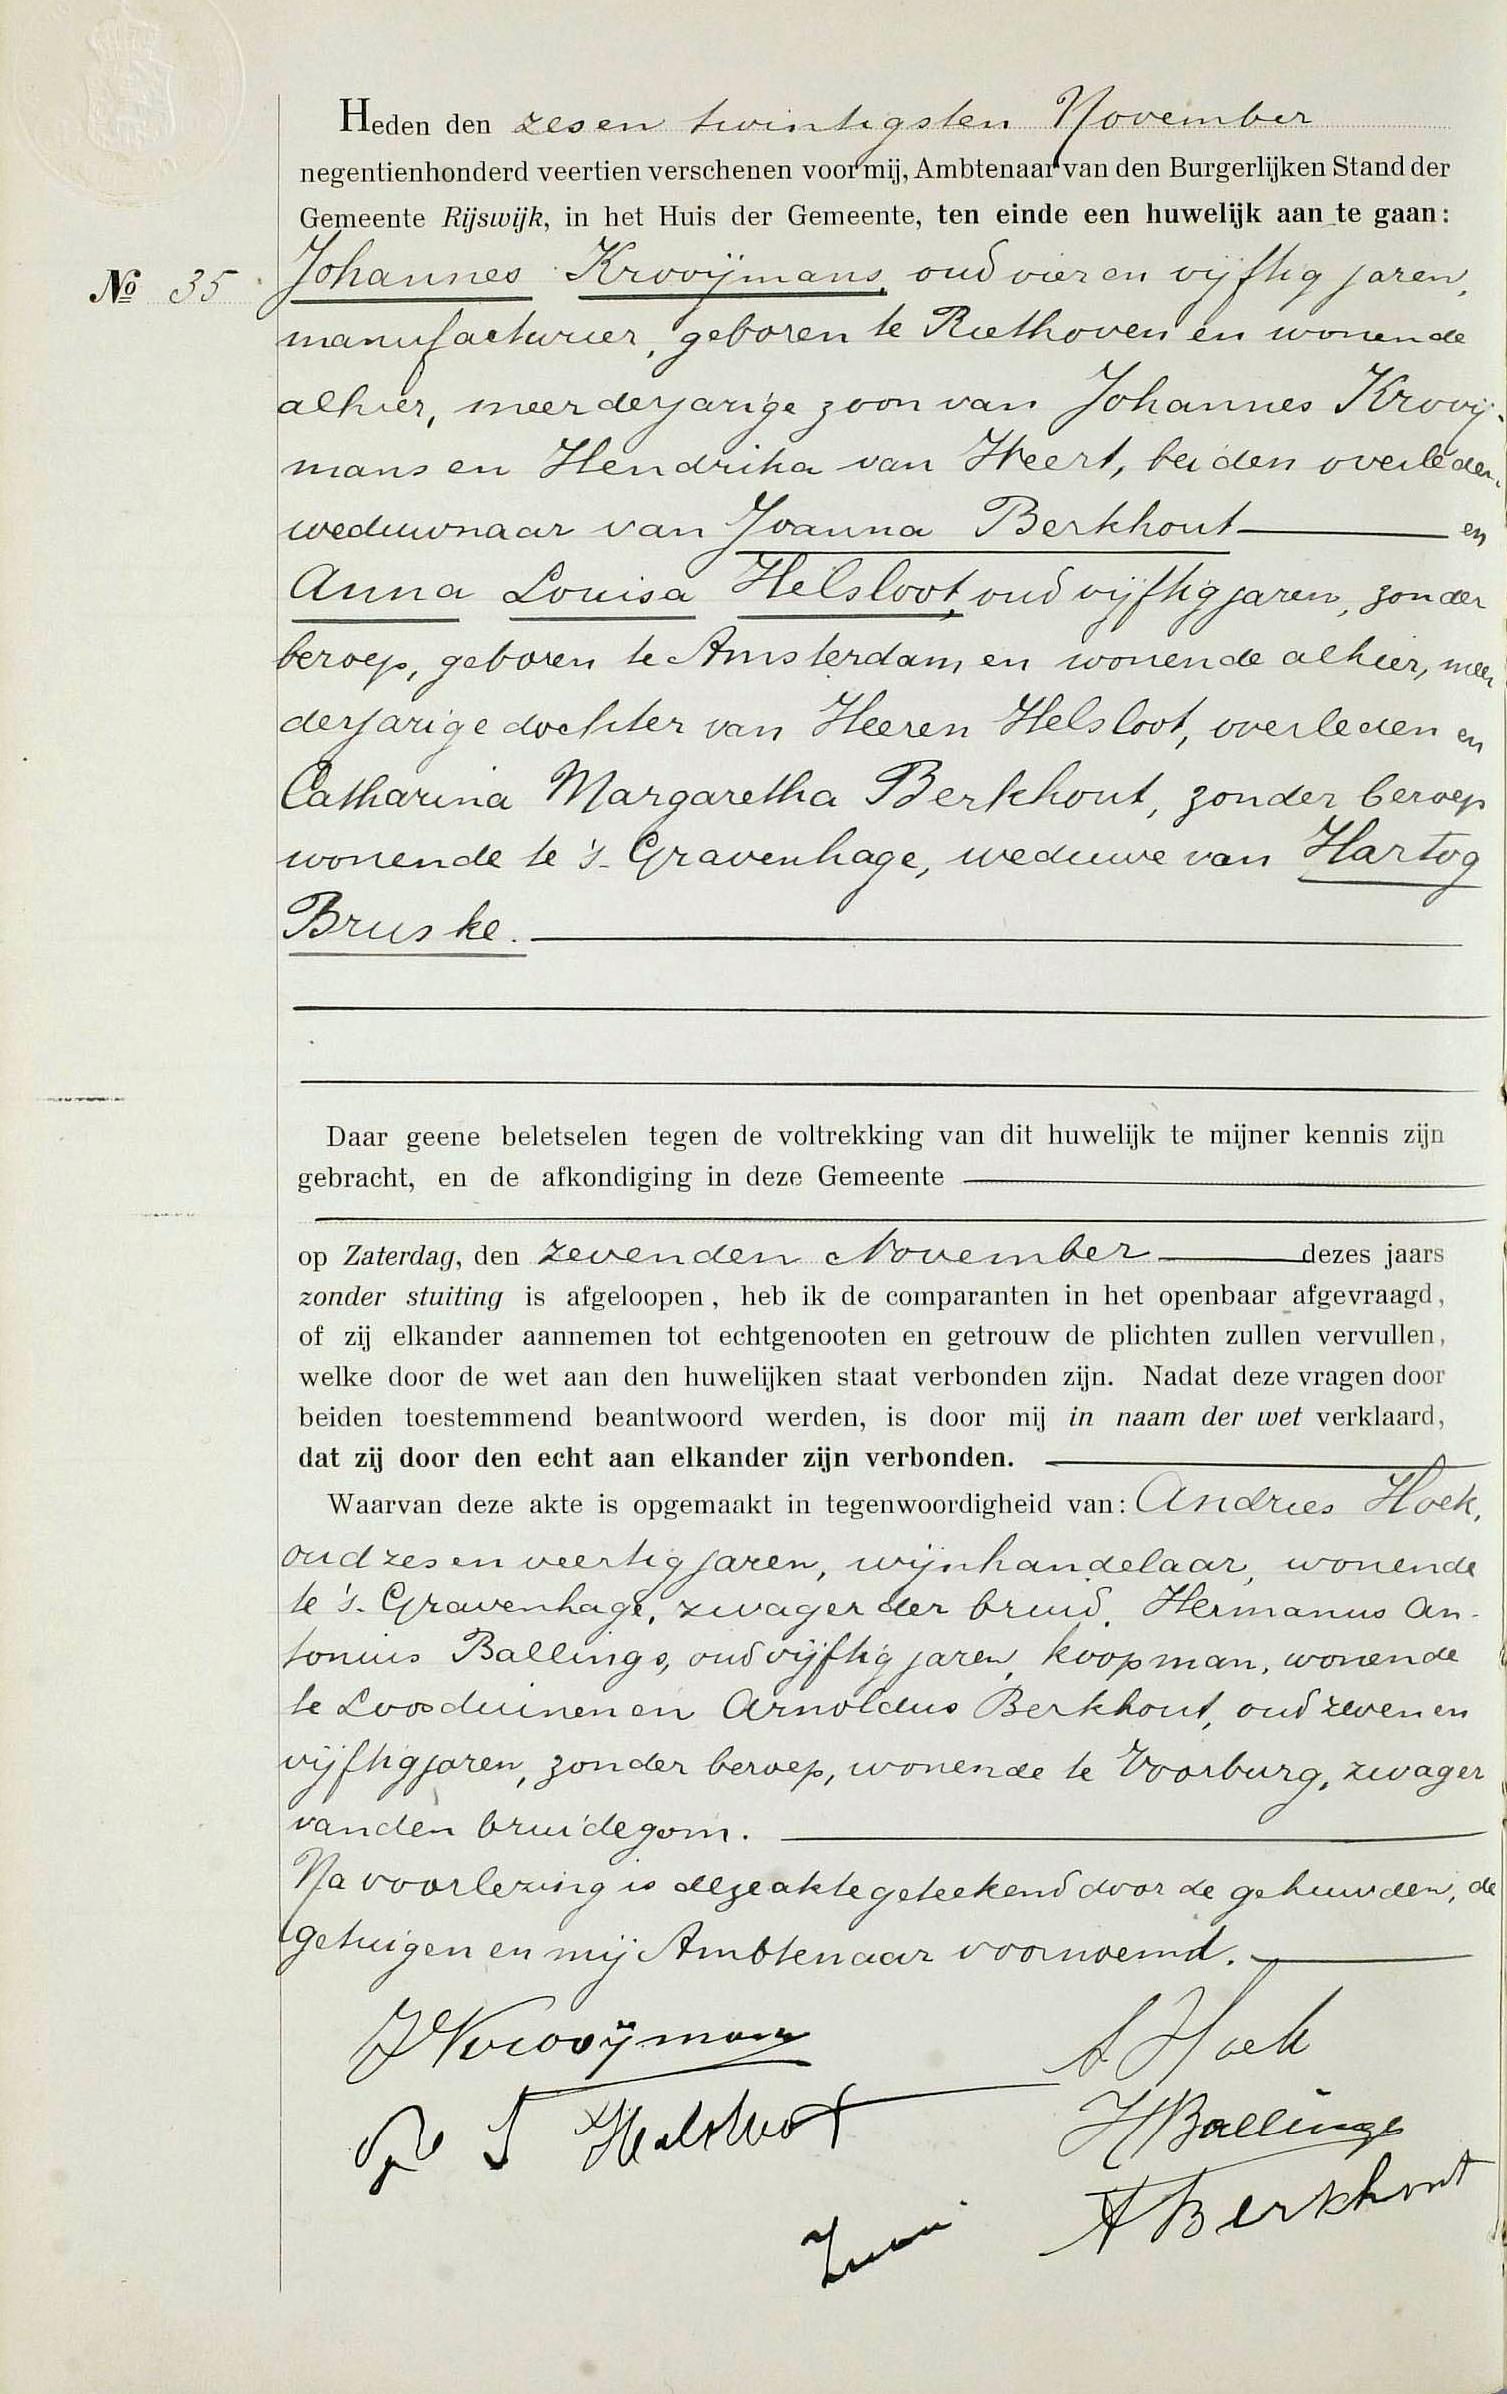 Heden den zesen twintigsten November
negentienhonderd veertien verschenen voor mij, Ambtenaar van den Burgerlijken Stand der
Gemeente Rijswijk, in het Huis der Gemeente, ten einde een huwelijk aan te gaan:
No 35
Johannes Krooijmans, oud vier en vijftig jaren,
manufacturier, geboren te Riethoven en wonende
alhier, meerderjarige zoon van Johannes Krooij-
mans en Hendrika van Weert, beiden overleden,
weduwnaar van Joanna Berkhout en
Anna Louisa Helsloot, oud vijftig jaren, zonder
beroep, geboren te Amsterdam en wonende alhier, meer
derjarige dochter van Heeren Helsloot, overleden en
Catharina Margaretha Berkhout, zonder beroep
wonende te 's-Gravenhage, weduwe van Hartog
Bruske.
Daar geene beletselen tegen de voltrekking van dit huwelijk te mijner kennis zijn
gebracht, en de afkondiging in deze Gemeente
op Zaterdag, den zevenden November dezes jaars
zonder stuiting is afgeloopen, heb ik de comparanten in het openbaar afgevraagd,
of zij elkander aannemen tot echtgenooten en getrouw de plichten zullen vervullen,
welke door de wet aan den huwelijken staat verbonden zijn. Nadat deze vragen door
beiden toestemmend beantwoord werden, is door mij in naam der wet verklaard,
dat zij door den echt aan elkander zijn verbonden.
Waarvan deze akte is opgemaakt in tegenwoordigheid van: Andries Hoek,
oud zes en veertig jaren, wijnhandelaar, wonende
te 's-Gravenhage, zwager der bruid, Hermanus An-
tonius Ballings, oud vijftig jaren, koopman, wonende
te Loosduinen en Arnoldus Berkhout, oud zeven en
vijftig jaren, zonder beroep, wonende te Voorburg, zwager
van den bruidegom.
Na voorlezing is deze akte geteekend door de gehuwden, de
getuigen en mij Ambtenaar voornoemd.
J Krooijmans
A Hoek
Helsloot
H Ballings
A Berkhout